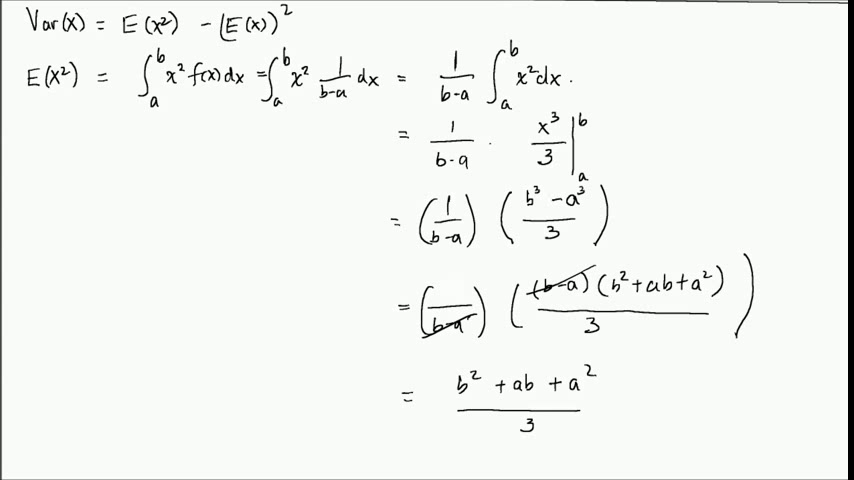 Var(x) = E(x²) - (E(x))²
E(x²) = ∫ₐᵇ x² f(x) dx = ∫ₐᵇ x² 1/(b-a) dx = 1/(b-a) ∫ₐᵇ x² dx.
= 1/(b-a) · x³/3 |ₐᵇ
= (1/(b-a)) ((b³ - a³)/3)
= (/(b-a)) ((b-a)(b² + ab + a²)/3)
= (b² + ab + a²)/3